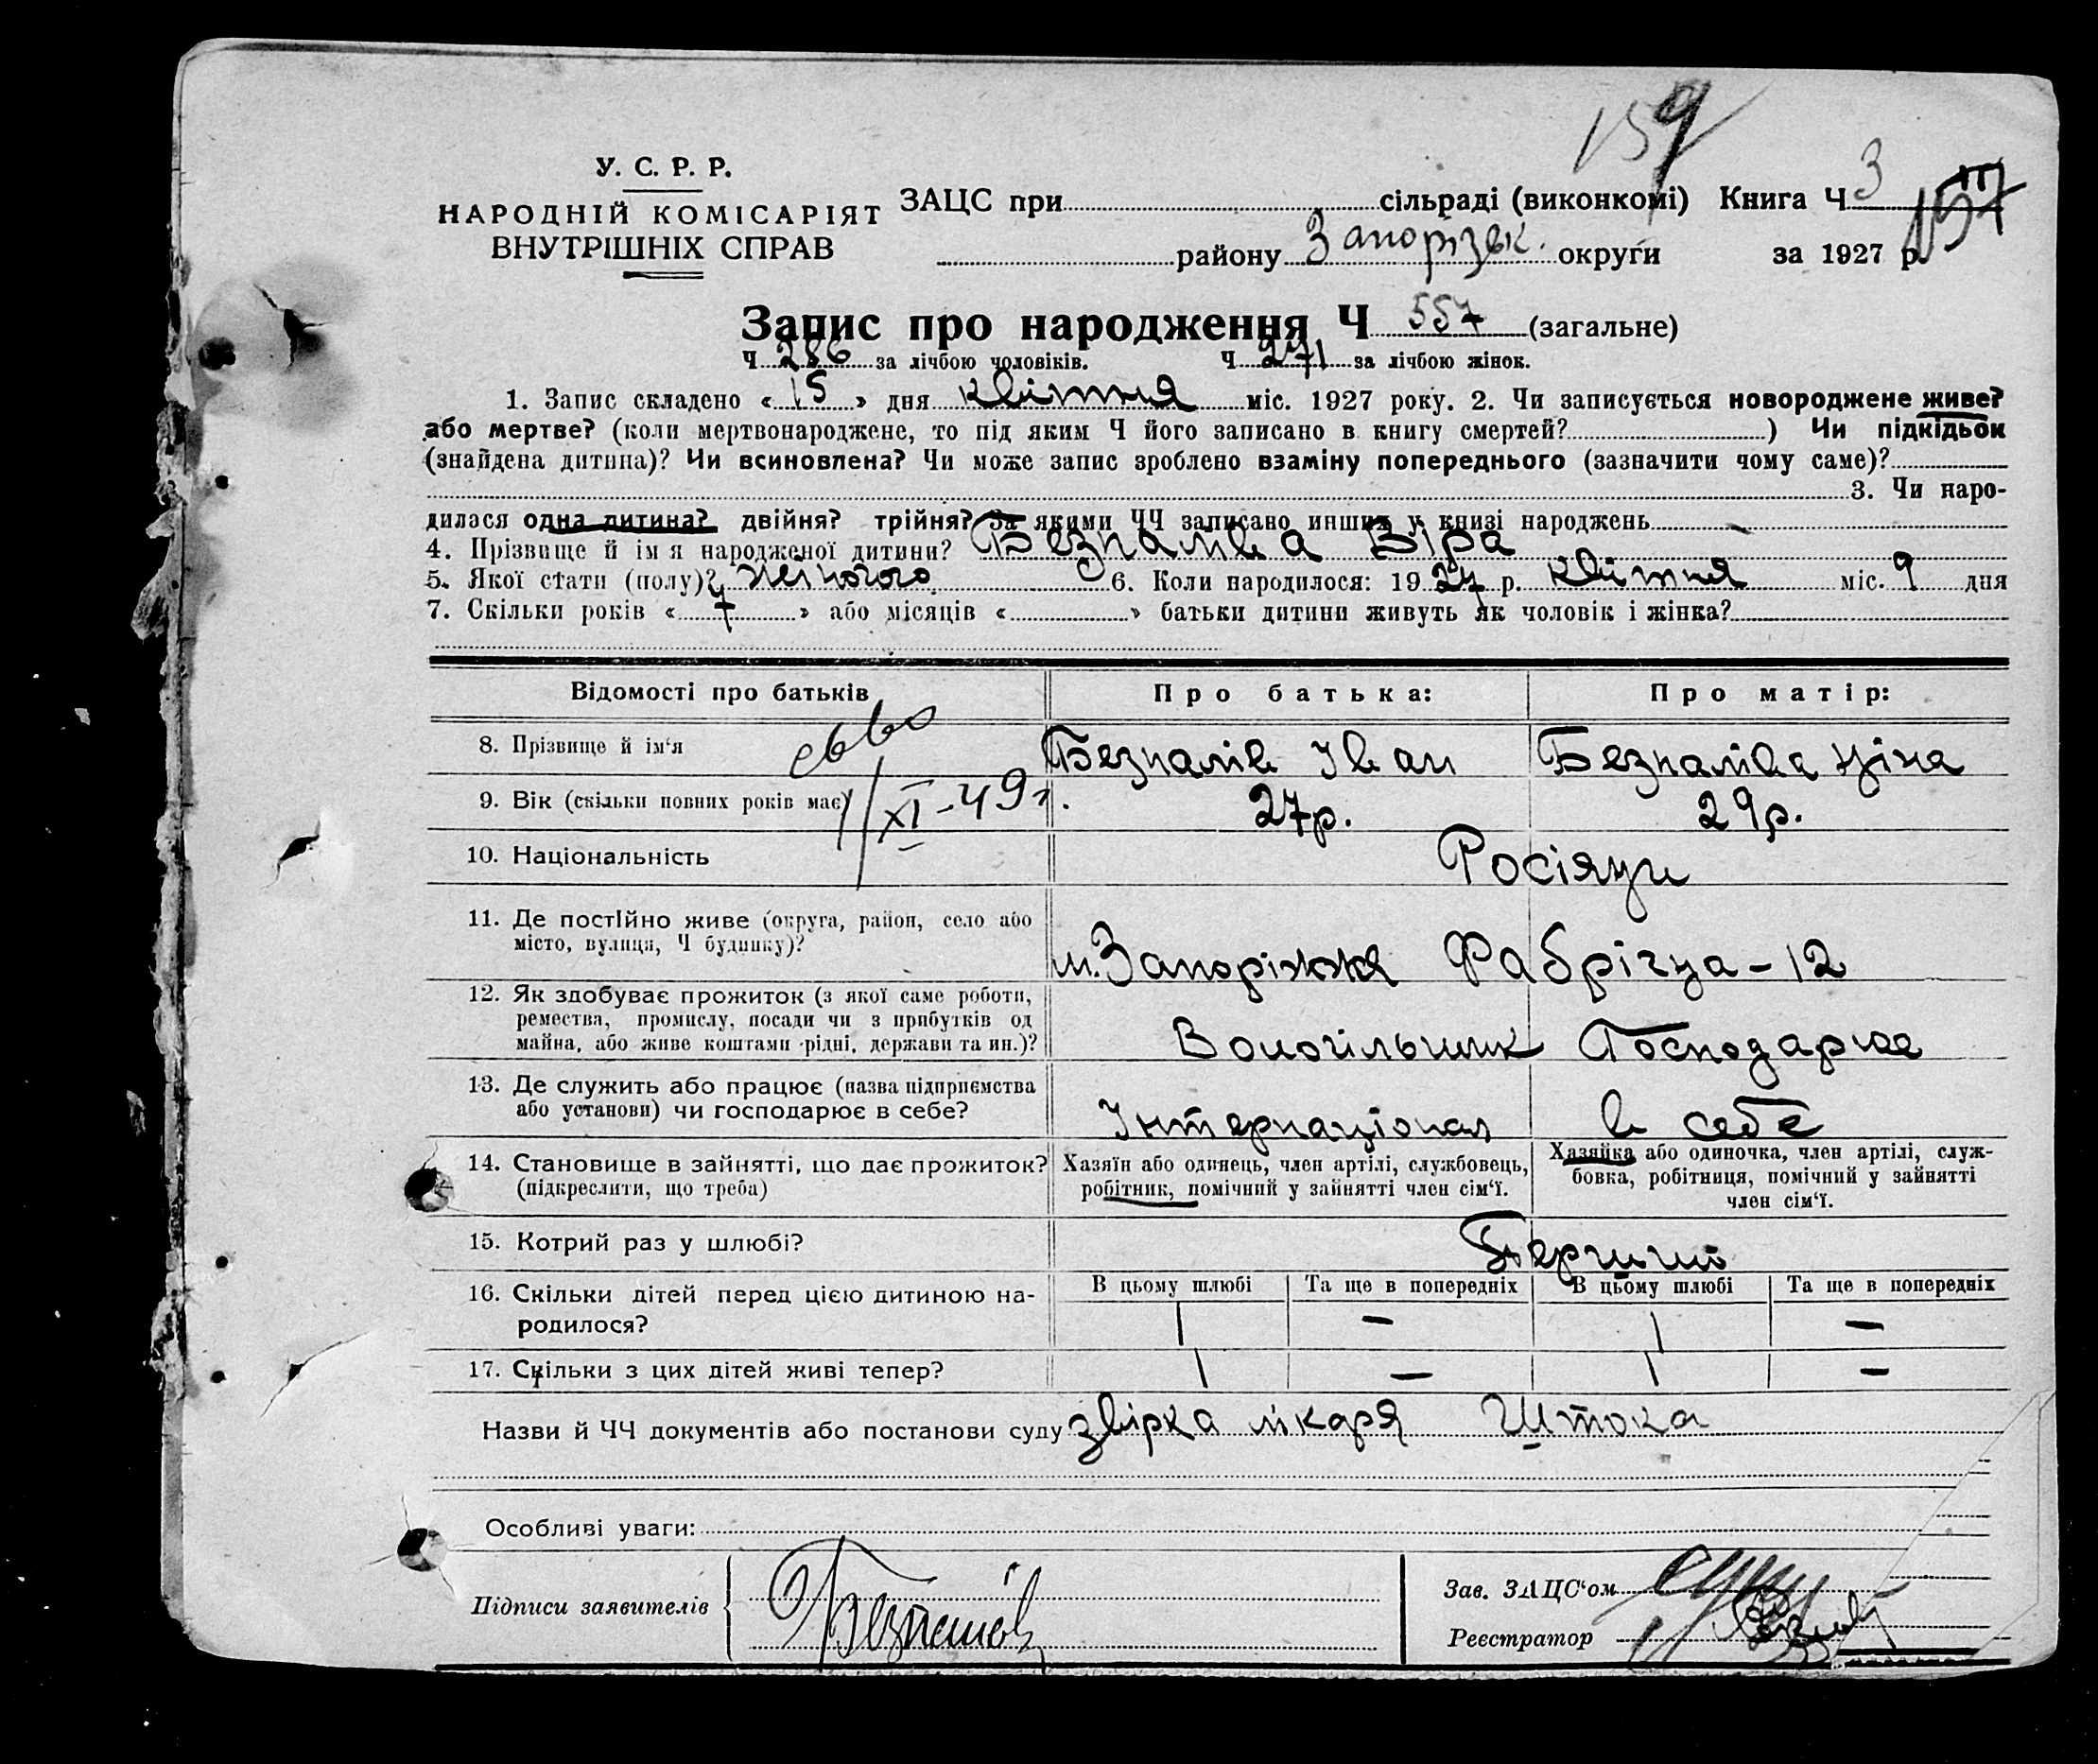 159
У. С. Р. Р.
НАРОДНІЙ КОМІСАРІЯТ
ВНУТРІШНІХ СПРАВ
ЗАЦС при сільраді (виконкомі) Книга Ч 3
157
району Запорізьк. округи за 1927 р.
Запис про народження Ч 557 (загальне)
Ч 286 за лічбою чоловіків. Ч 271 за лічбою жінок.
1. Запис складено «15» дня квітня міс. 1927 року. 2. Чи записується новороджене живе?
або мертве? (коли мертвонароджене, то під яким Ч його записано в книгу смертей? ) Чи підкідьок
(знайдена дитина)? Чи всиновлена? Чи може запис зроблено взаміну попереднього (зазначити чому саме)?
3. Чи наро-
дилася одна дитина? двійня? трійня? За якими ЧЧ записано инших у книзі народжень
4. Прізвище й ім'я народженої дитини? Безпаліва Віра
5. Якої стати (полу)? жіночого 6. Коли народилося: 1927 р. квітня міс. 9 дня
7. Скільки років «7» або місяців « » батьки дитини живуть як чоловік і жінка?
Відомості про батьків Про батька: Про матір:
8. Прізвище й ім'я Безпалів Іван Безпаліва
9. Вік (скільки повних років має) XI-49г. 27р. 29р.
10. Національність Росіяни
11. Де постійно живе (округа, район, село або
місто, вулиця, Ч будинку)?
м. Запоріжжя Фабрічна-12
12. Як здобуває прожиток (з якої саме роботи,
ремества, промислу, посади чи з прибутків од
майна, або живе коштами рідні, держави та ин.)?
Господарює
13. Де служить або працює (назва підприємства
або установи) чи господарює в себе?
Інтернаціонал в себе
14. Становище в зайнятті, що дає прожиток?
(підкреслити, що треба)
Хазяїн або одинець, член артілі, службовець,
робітник, помічний у зайнятті член сім'ї.
Хазяйка або одиночка, член артілі, служ-
бовка, робітниця, помічний у зайнятті
член сім'ї.
15. Котрий раз у шлюбі? Перший
16. Скільки дітей перед цією дитиною на-
родилося?
В цьому шлюбі Та ще в попередніх В цьому шлюбі Та ще в попередніх
1 — 1 —
17. Скільки з цих дітей живі тепер? 1 — 1 —
Назви й ЧЧ документів або постанови суду звірка лікаря Штока
Особливі уваги:
Підписи заявителів Безпалів
Зав. ЗАЦС'ом
Реєстратор